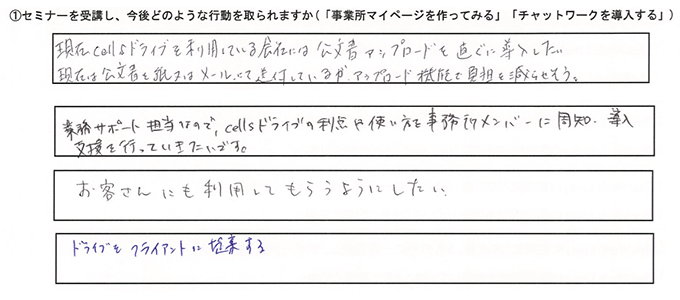 ①セミナーを受講し、今後どのような行動を取られますか(「事業所マイページを作ってみる」「チャットワークを導入する」)
現在cellsドライブを利用している会社には公文書アップロードを直ぐに導入したい
現在は公文書を紙又はメールにて送付しているがアップロード機能で負担を減らせそう。
業務サポート担当なので、cellsドライブの利点や使い方を事務所メンバーに周知・導入
支援を行っていきたいです。
お客さんにも利用してもらうようにしたい
ドライブをクライアントに提案する